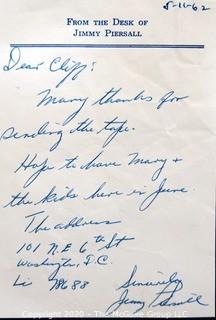 FROM THE DESK OF
JIMMY PIERSALL
5-11-62
Dear Cliff:
Many thanks for
sending the tape.
Hope to have Mary +
the kids here in June.
The address
101 N.E 6th St
Washington, D.C.
Li 78688
Sincerely
Jimmy Piersall
Copyright 2020 - The McGuire Group